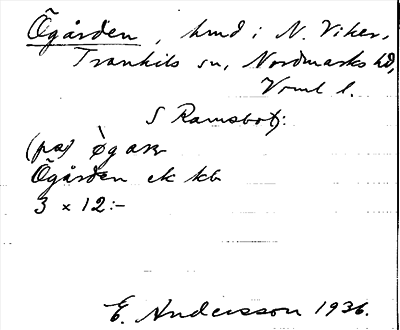 Ögården, hmd i N. Viker,
Trankils sn, Nordmarks hd,
Vrml l.
S Ramsbotj:
(pa) øgaṛ
Ögården ek kb
3 x 12:-
E. Andersson 1936.